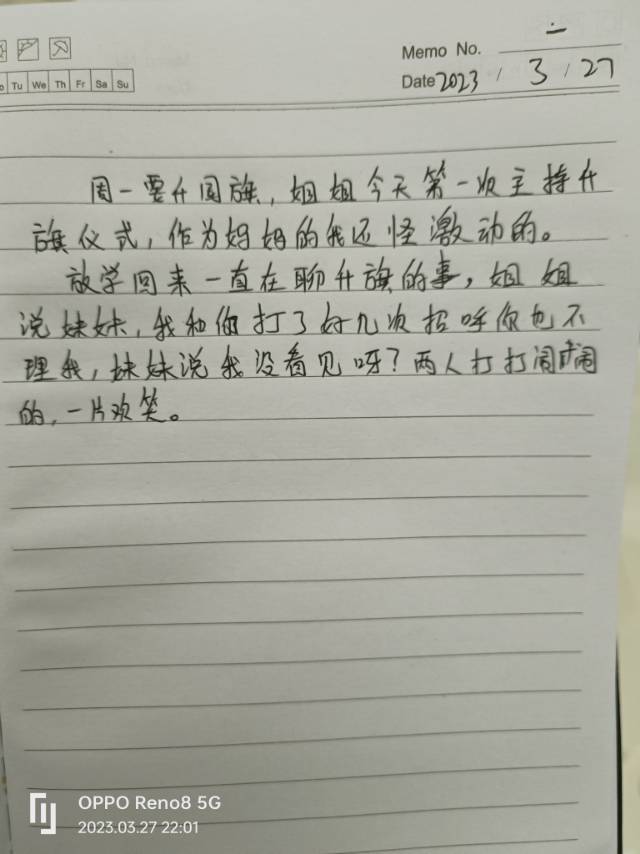 Memo No. 一
Date 2023 / 3 / 27
o Tu We Th Fr Sa Su
周一要升国旗，姐姐今天第一次主持升
旗仪式，作为妈妈的我还怪激动的。
放学回来一直在聊升旗的事，姐姐
说妹妹，我和你打了好几次招呼你也不
理我，妹妹说我没看见呀？两人打打闹闹
的，一片欢笑。
OPPO Reno8 5G
2023.03.27 22:01